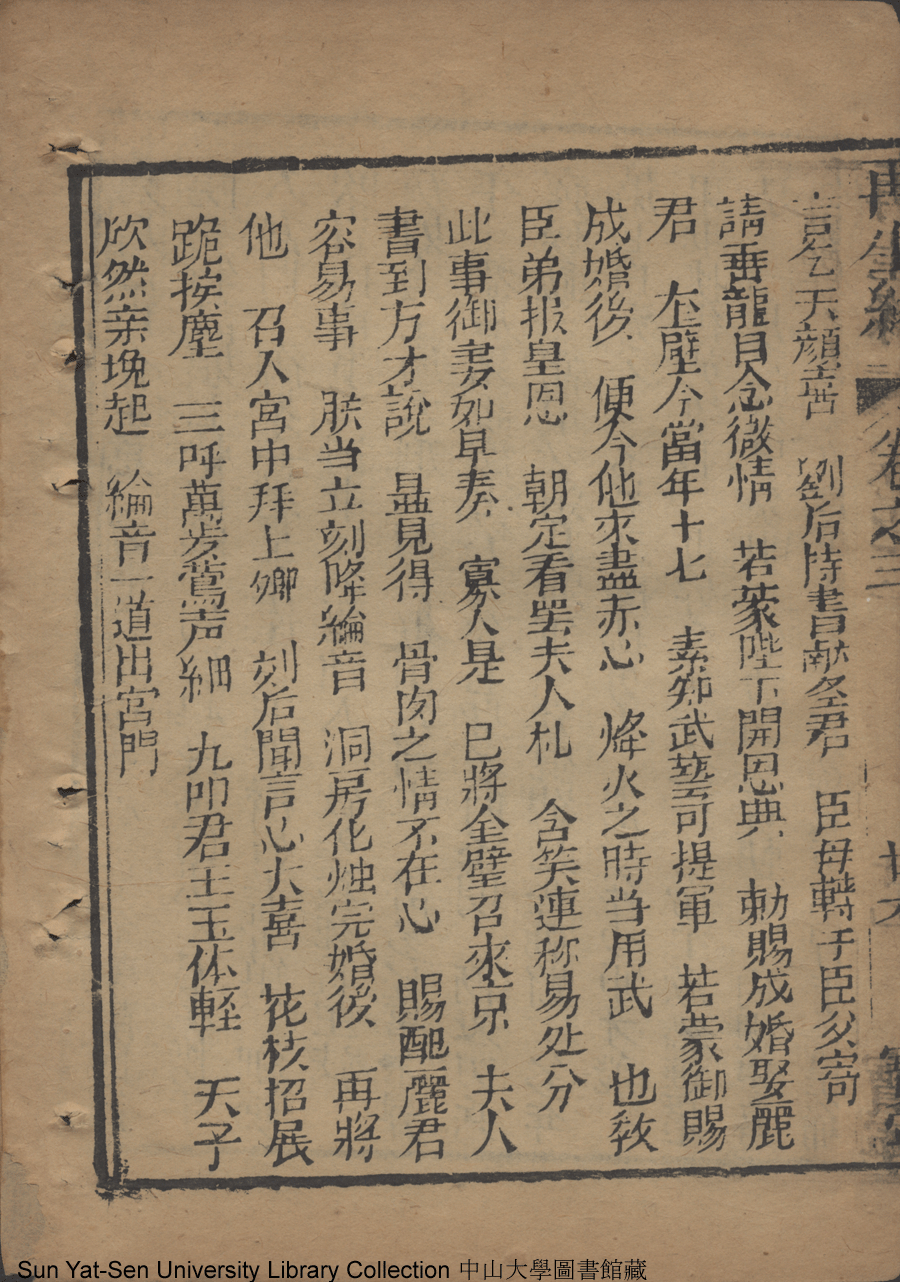 再生緣 卷之三 廿六
言乞天顏喜 劉后持書献圣君 臣母轉于臣父寄
請垂龍目念微情 若蒙陛下開恩典 勅賜成婚娶麗
君 奎壁今當年十七 素知武藝可提軍 若蒙御賜
成婚後 便令他來盡赤心 烽火之時当用武 也敎
臣弟报皇恩 朝定看罢夫人札 含笑連称易处分
此事御妻如早奏 寡人是 已將全壁召來京 夫人
書到方才說 显見得 骨肉之情不在心 賜配麗君
容易事 朕当立刻降綸音 洞房化烛完婚後 再將
他 召入宮中拜上卿 刻后聞言心大喜 花枝招展
跪挨塵 三呼萬岁鶯声細 九叩君王玉体軽 天子
欣然亲挽起 綸音一道出宮門
Sun Yat-Sen University Library Collection 中山大學圖書館藏